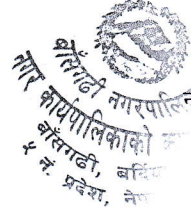 बाँसगढी नगरपालिका
नगर कार्यपालिकाको
बाँसगढी, बर्दिया
५ नं. प्रदेश, नेपाल